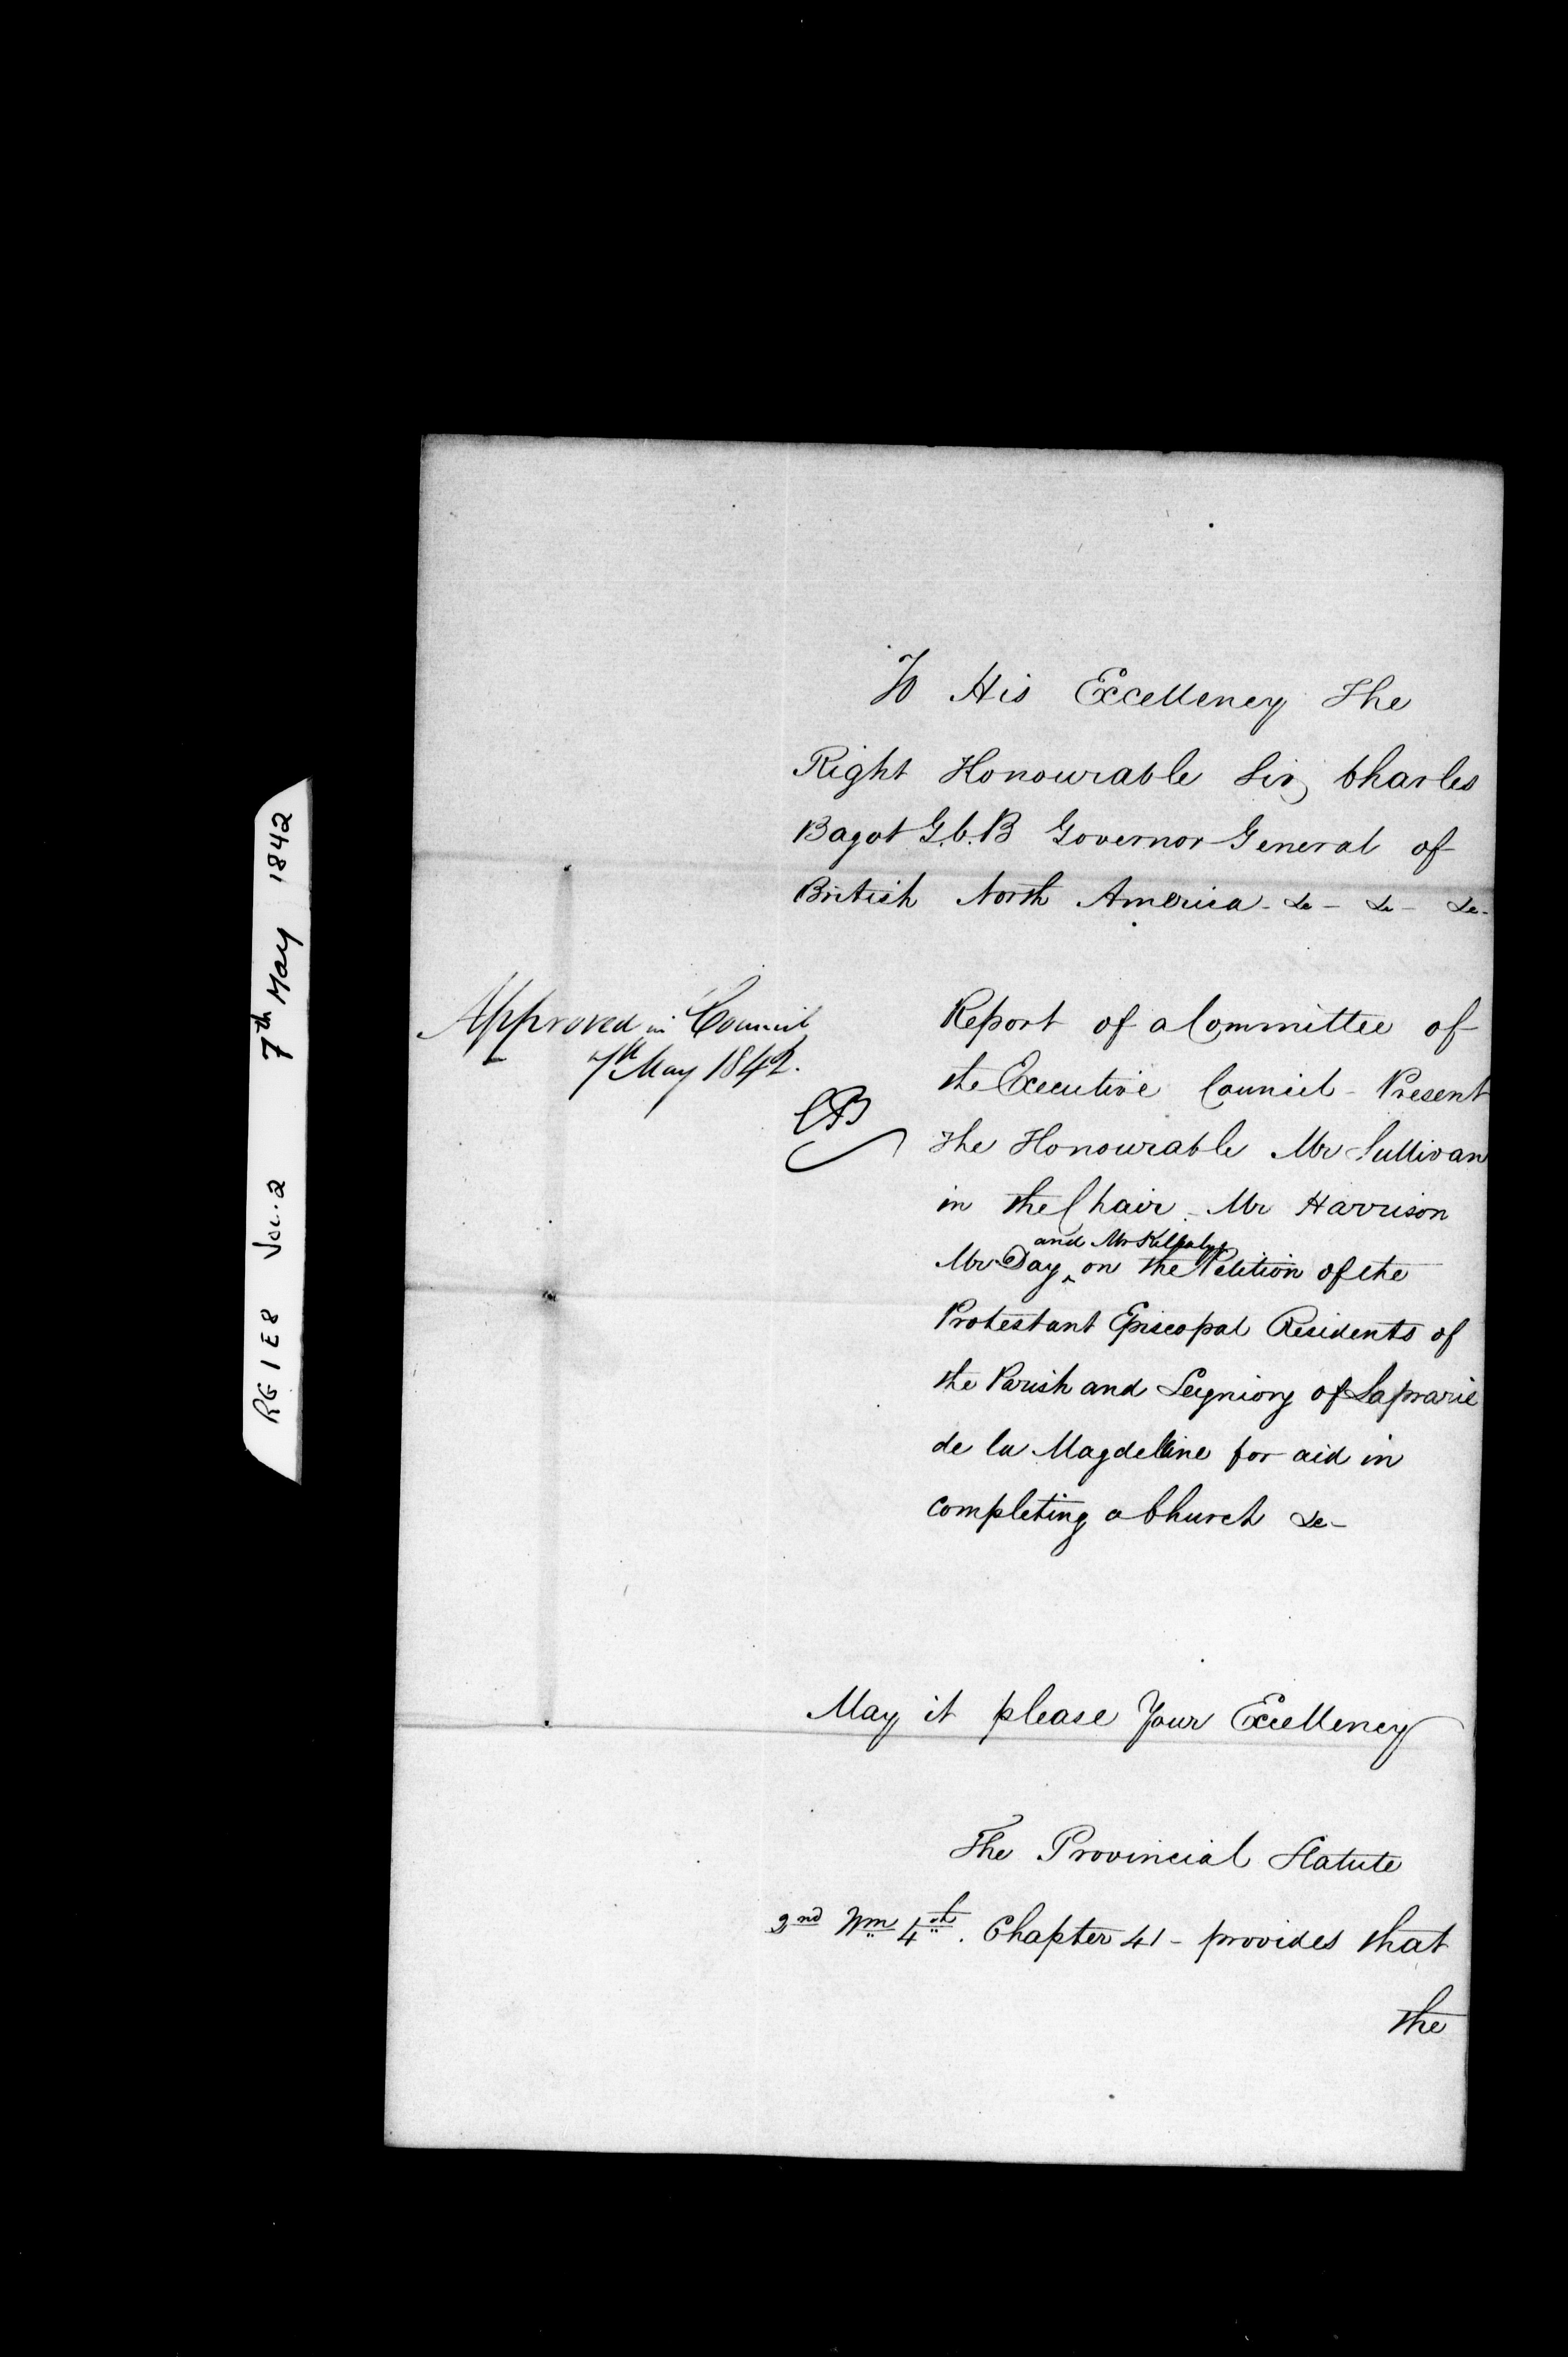 RG 1 E 8 Vol. 2 7th May 1842
To His Excellency The
Right Honourable Sir Charles
Bagot G.C.B Governor General of
British North America - &c - &c - &c -
Approved in Council
7th May 1842.
CB
Report of a Committee of
the Executive Council - Present
The Honourable Mr Sullivan
in the Chair - Mr Harrison
and Mr Killaly
Mr Day ^ on the Petition of the
Protestant Episcopal Residents of
the Parish and Seigniory of Laprarie
de la Magdeline for aid in
completing a Church &c -
May it please Your Excellency
The Provincial Statute
2nd Wm 4th. Chapter 41 - provides that
the